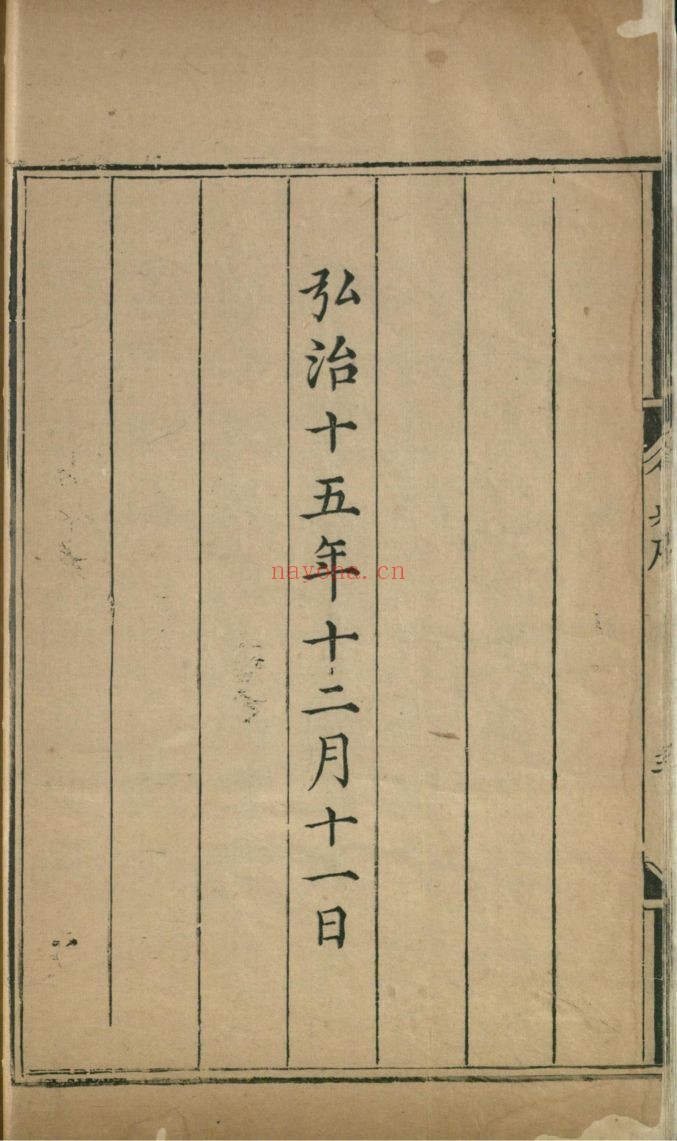 弘治十五年十二月十一日
nayona.cn